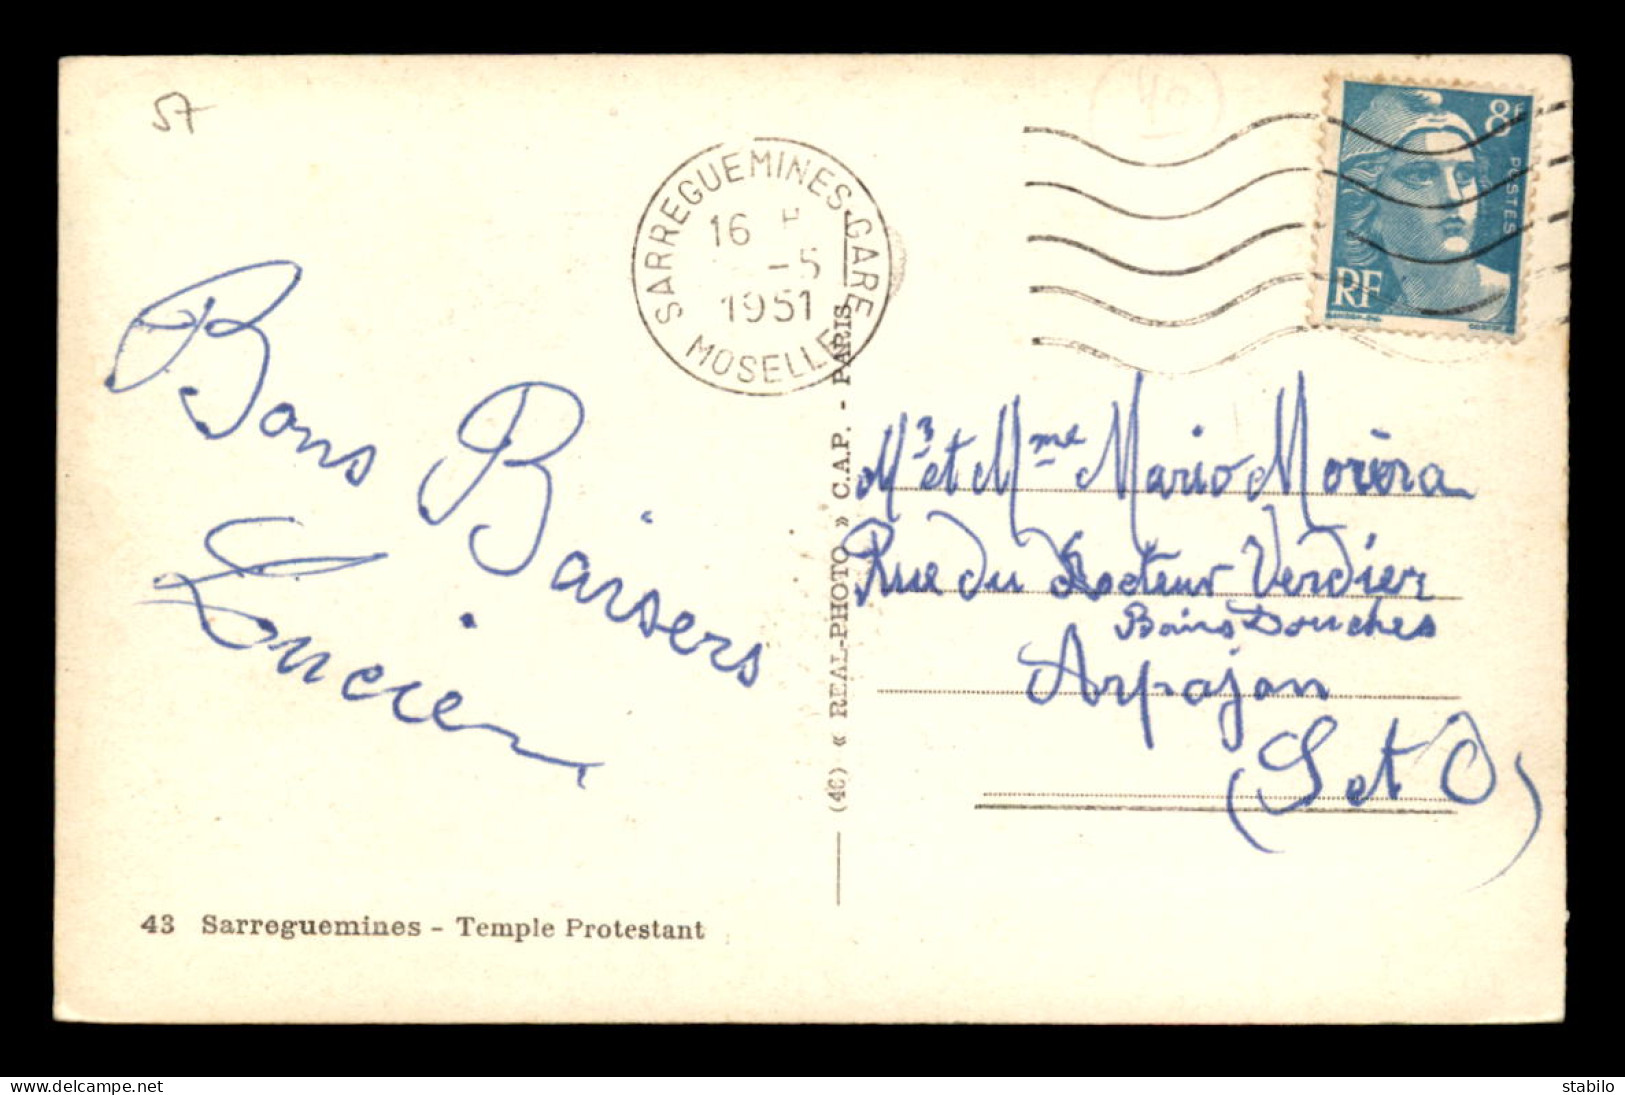 57
40
SARREGUEMINES-GARE
16 H
-5
1951
MOSELLE
8F
POSTES
RF
Bons Baisers
Lucien
Mr et Mme Mario Morèra
Rue du Docteur Verdier
Bains Douches
Arpajon
(S et O)
(46) « REAL-PHOTO » C.A.P. - PARIS
43 Sarreguemines - Temple Protestant
www.delcampe.net
stabilo